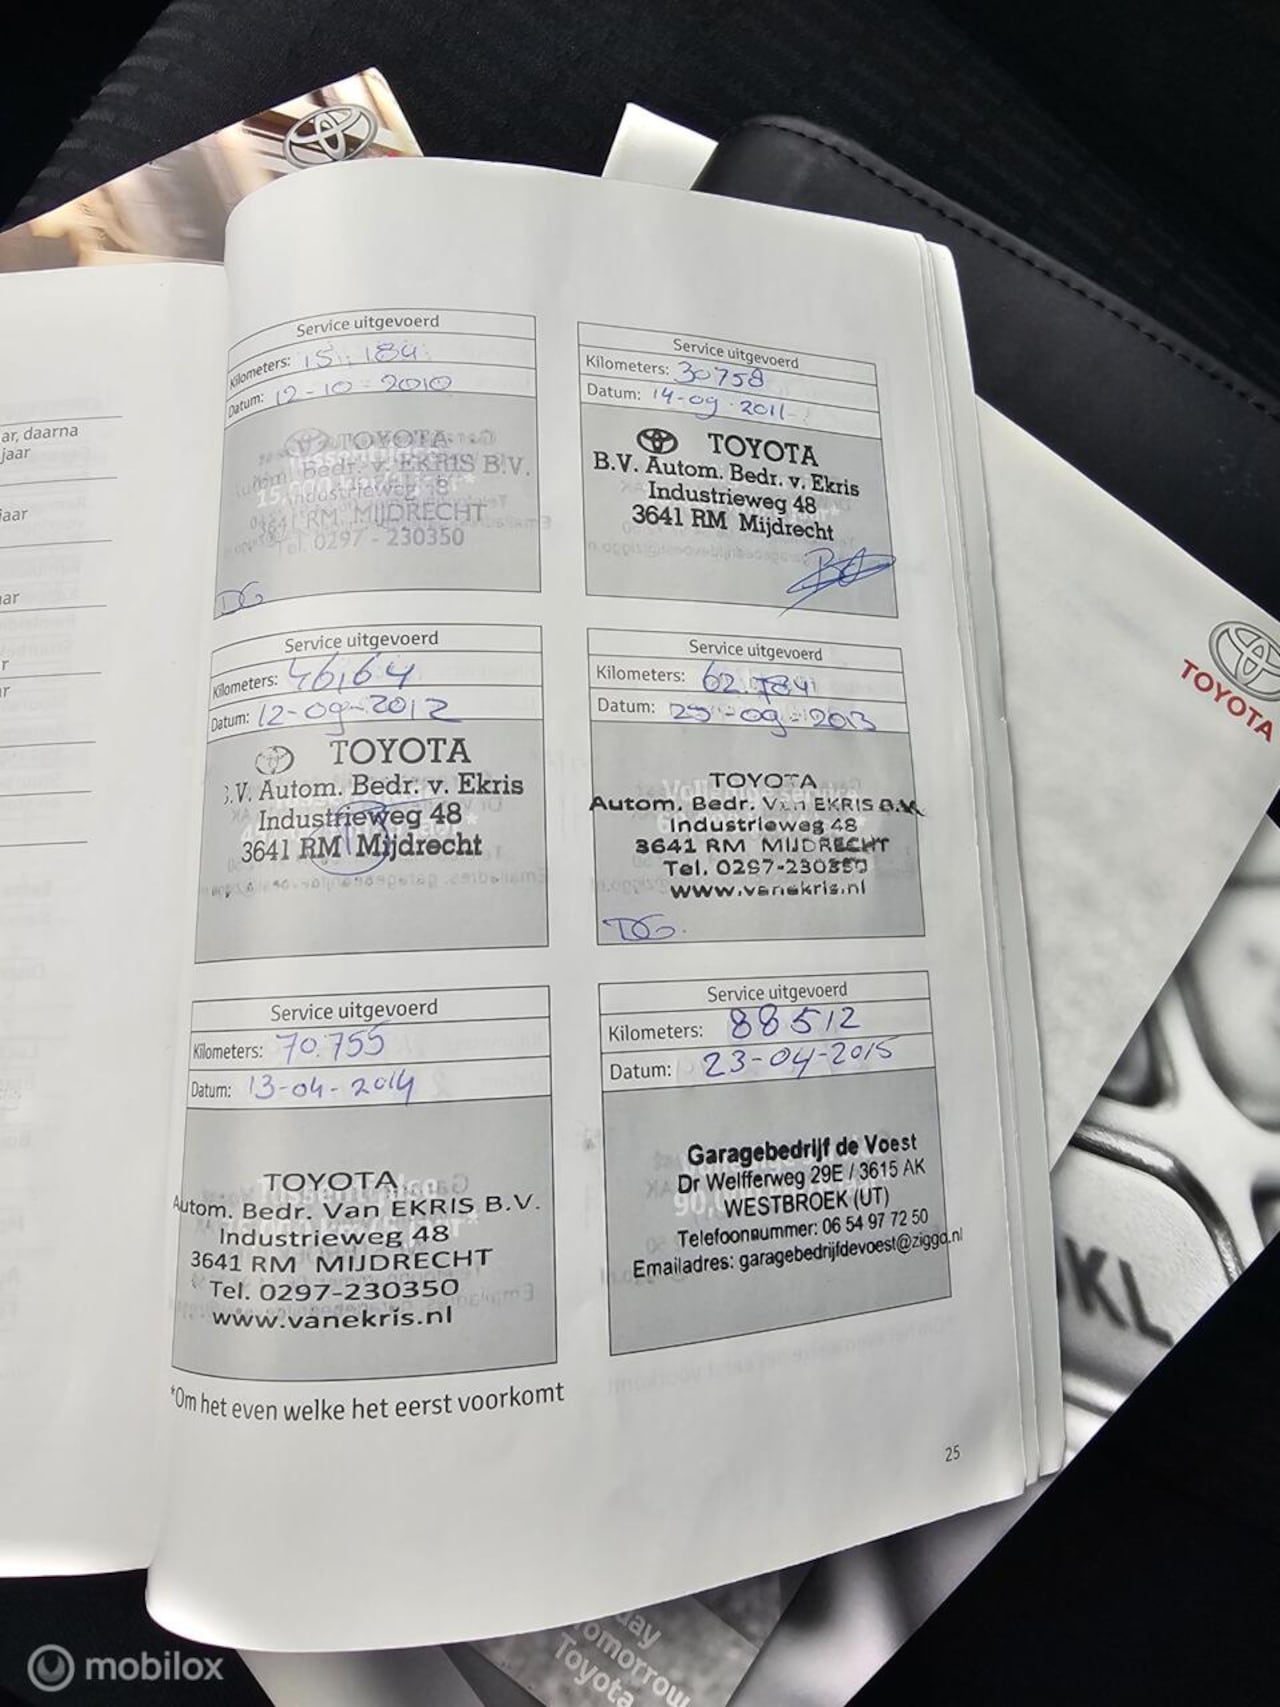 ar, daarna
jaar
jaar
aar
r
r
Service uitgevoerd
Kilometers: 15.184
Datum: 12-10-2010
TOYOTA
Bedr. v. EKRIS B.V.
Industrieweg 48
3641 RM MIJDRECHT
Tel. 0297 - 230350
DG
Service uitgevoerd
Kilometers: 30758
Datum: 14-09-2011
TOYOTA
B.V. Autom. Bedr. v. Ekris
Industrieweg 48
3641 RM Mijdrecht
Service uitgevoerd
Kilometers: 46,164
Datum: 12-09-2012
TOYOTA
.V. Autom. Bedr. v. Ekris
Industrieweg 48
3641 RM Mijdrecht
Service uitgevoerd
Kilometers: 62.784
Datum: 25-09-2013
TOYOTA
Autom. Bedr. Van EKRIS B.V.
Industrieweg 48
3641 RM MIJDRECHT
Tel. 0297-230350
www.vanekris.nl
DG.
Service uitgevoerd
Kilometers: 70.755
Datum: 13-04-2014
TOYOTA
Autom. Bedr. Van EKRIS B.V.
Industrieweg 48
3641 RM MIJDRECHT
Tel. 0297-230350
www.vanekris.nl
Service uitgevoerd
Kilometers: 88512
Datum: 23-04-2015
Garagebedrijf de Voest
Dr Welfferweg 29E / 3615 AK
WESTBROEK (UT)
Telefoonnummer: 06 54 97 72 50
Emailadres: garagebedrijfdevoest@ziggo.nl
*Om het even welke het eerst voorkomt
25
TOYOTA
KL
day
omorrow
Toyota
mobilox